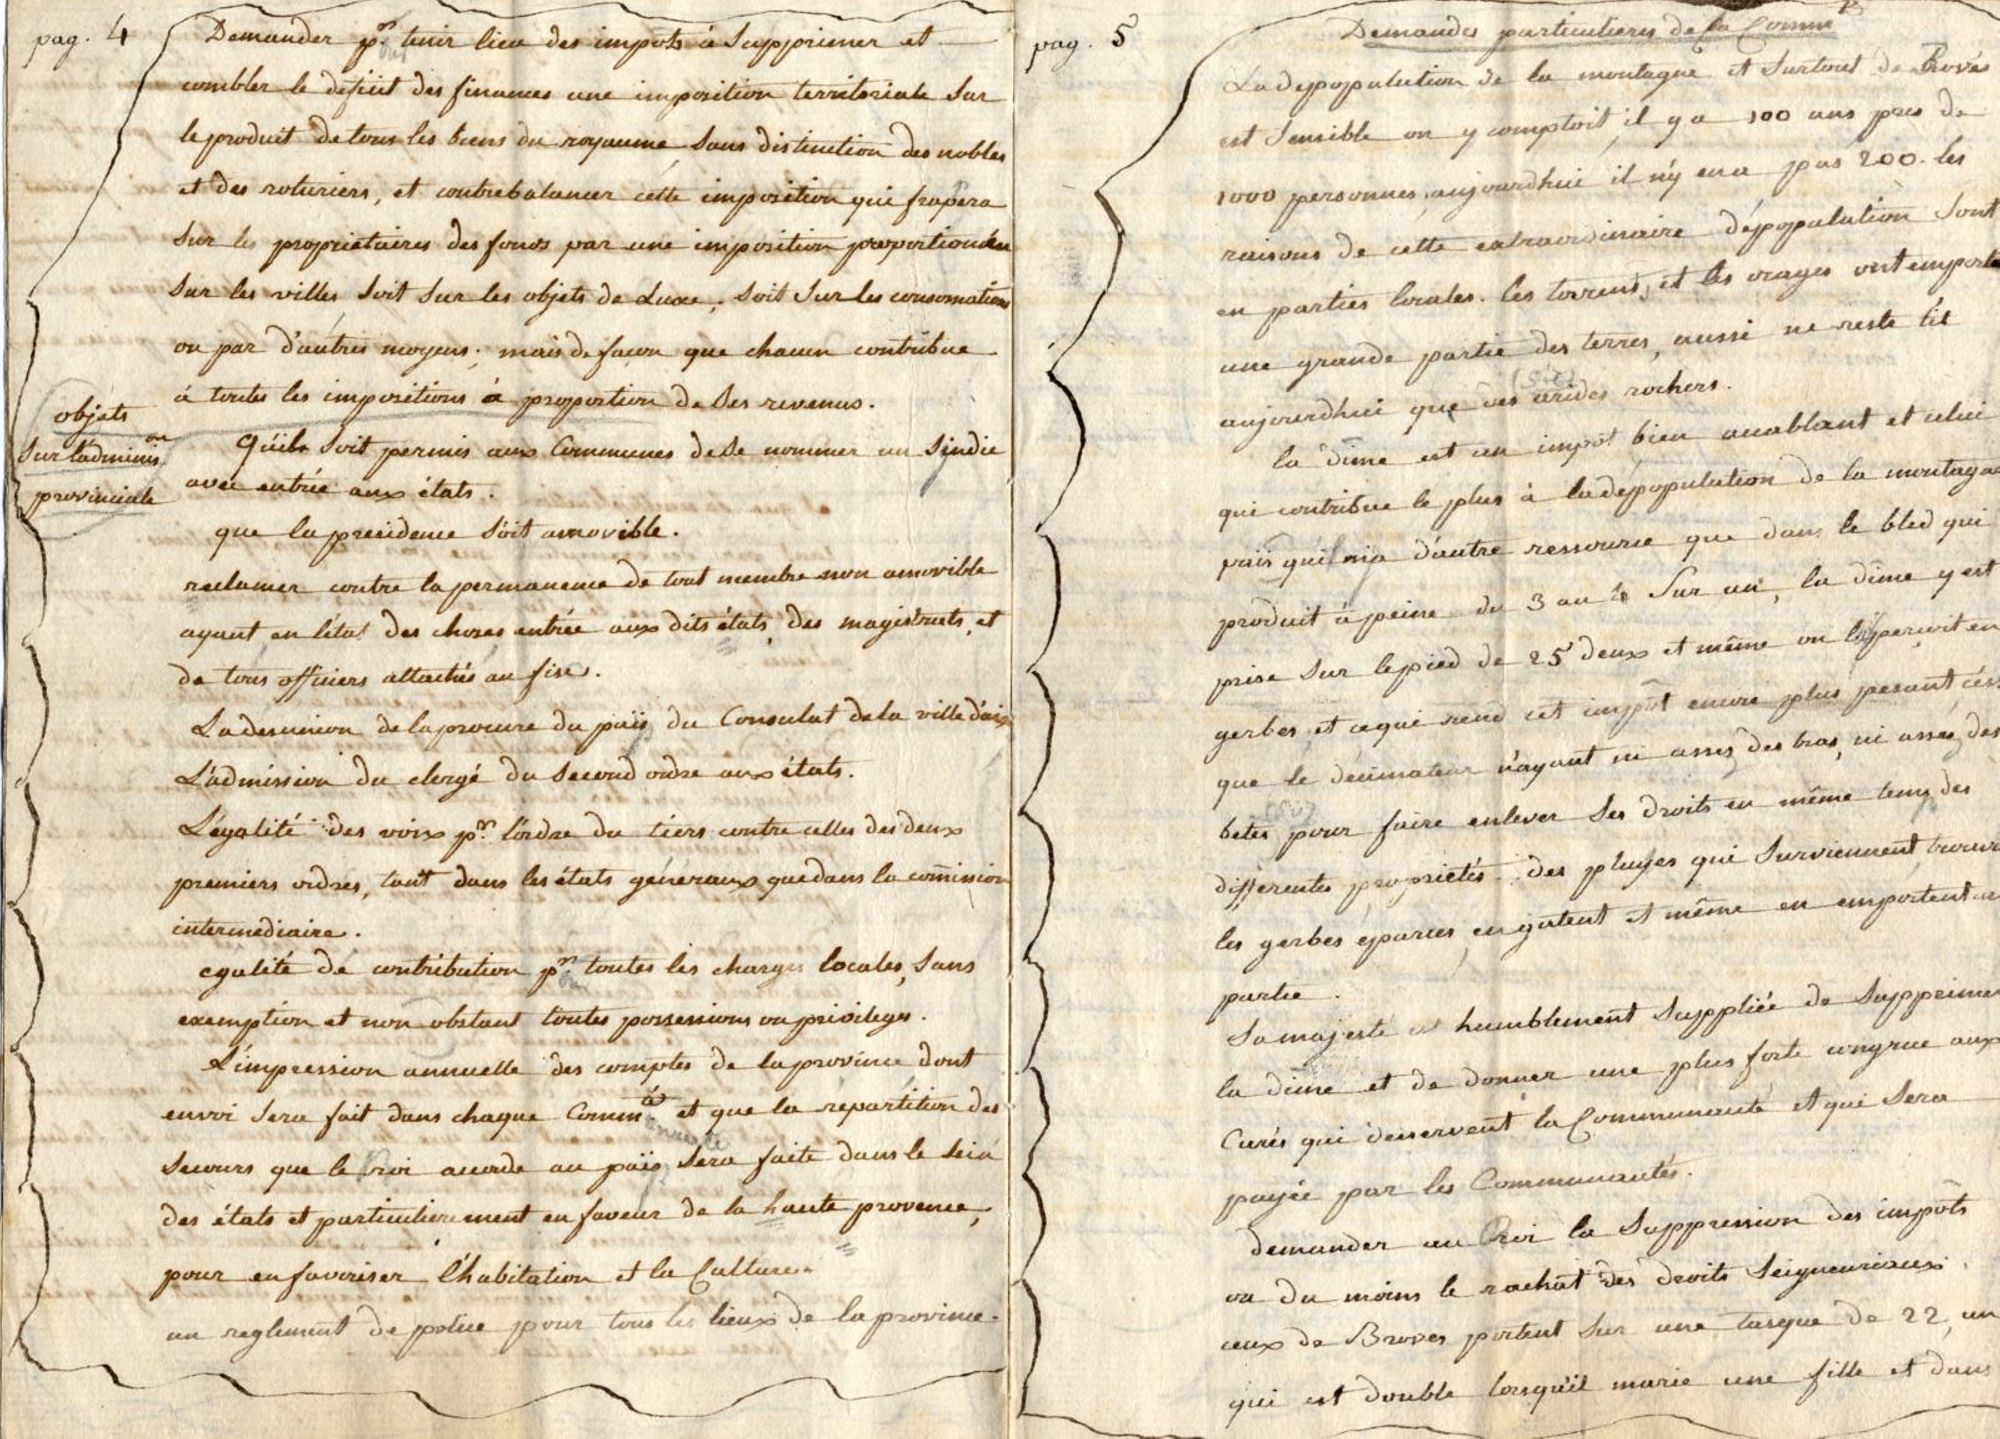 pag. 4
Demander pr. tenir lieu des impots à Supprimer et
combler le deficit des finances une imposition territoriale sur
le produit de tous les biens du royaume, sans distinction des nobles
et des roturiers, et contrebalancer cette imposition qui frapera
sur les propriétaires des fonds par une imposition proportionnée
sur les villes soit sur les objets de Luxe, soit sur les consomations
ou par d'autres moyens; mais de façon que chacun contribue
à toutes les impositions à proportion de ses revenus.
objets
sur l'adminis.on
provinciale
Qu'il soit permis aux Communes de se nommer un sindic
avec entrée aux états.
que la presidence soit amovible.
reclamer contre la permanence de tout membre non amovible
ayant en l'état des choses entrée aux dits états, des magistrats, et
de tous officiers attachés au fisc.
La desunion de la procure du païs du Consulat de la ville d'aix
L'admission du clergé du second ordre aux états.
L'égalité des voix pr. l'ordre du tiers contre celles des deux
premiers ordres, tant dans les états géneraux que dans la com̃ission
intermédiaire.
egalité de contribution pr. toutes les charges locales, sans
exemption et non obstant toutes possessions ou privileges.
L'impression annuelle des comptes de la province dont
envoi sera fait dans chaque Comm.té et que la répartition des
secours que le roi accorde au païs sera faite dans le sein
des états et particulierement en faveur de la haute provence,
pour en favoriser l'habitation et la Culture.
un reglement de police pour tous les lieux de la province.
pag. 5
Demandes particulieres de la Comm
La depopulation de la montagne et surtout de Brovés
est sensible on y comptoit, il y a 100 ans pres de
1000 personnes, aujourdhui il n'y en a pas 200. les
raisons de cette extraordinaire dépopulation sont
en parties locales. les torrens, et les orages ont emporté
une grande partie des terres, aussi ne reste t'il
aujourdhui que des arides rochers. (sic)
la dime est un impôt bien accablant et celui
qui contribue le plus à la dépopulation de la montagne
puis qu'il n'a d'autre ressource que dans le bled qui
produit à peine du 3 au 4 sur un, la dime y est
prise sur le pied de 25 deux et même on l'aperçoit en
gerbes et ce qui rend cet impôt encore plus pesant c'est
que le décimateur n'ayant ni assés des bras, ni assés des
betes pour faire enlever ses droits en même tems des
différentes propriétés. des pluyes qui surviennent trouvant
les gerbes éparses, en gatent et même en emportent une
partie.
Sa majesté est humblement suppliée de supprimer
la dime et de donner une plus forte congrue aux
Curés qui desservent la Communauté et qui sera
payée par les Communautés.
demander au Roi la suppression des impôts
ou du moins le rachat des droits seigneuriaux.
ceux de Broves portent sur une tasque de 22, un
qui est double lorsqu'il marie une fille et dans